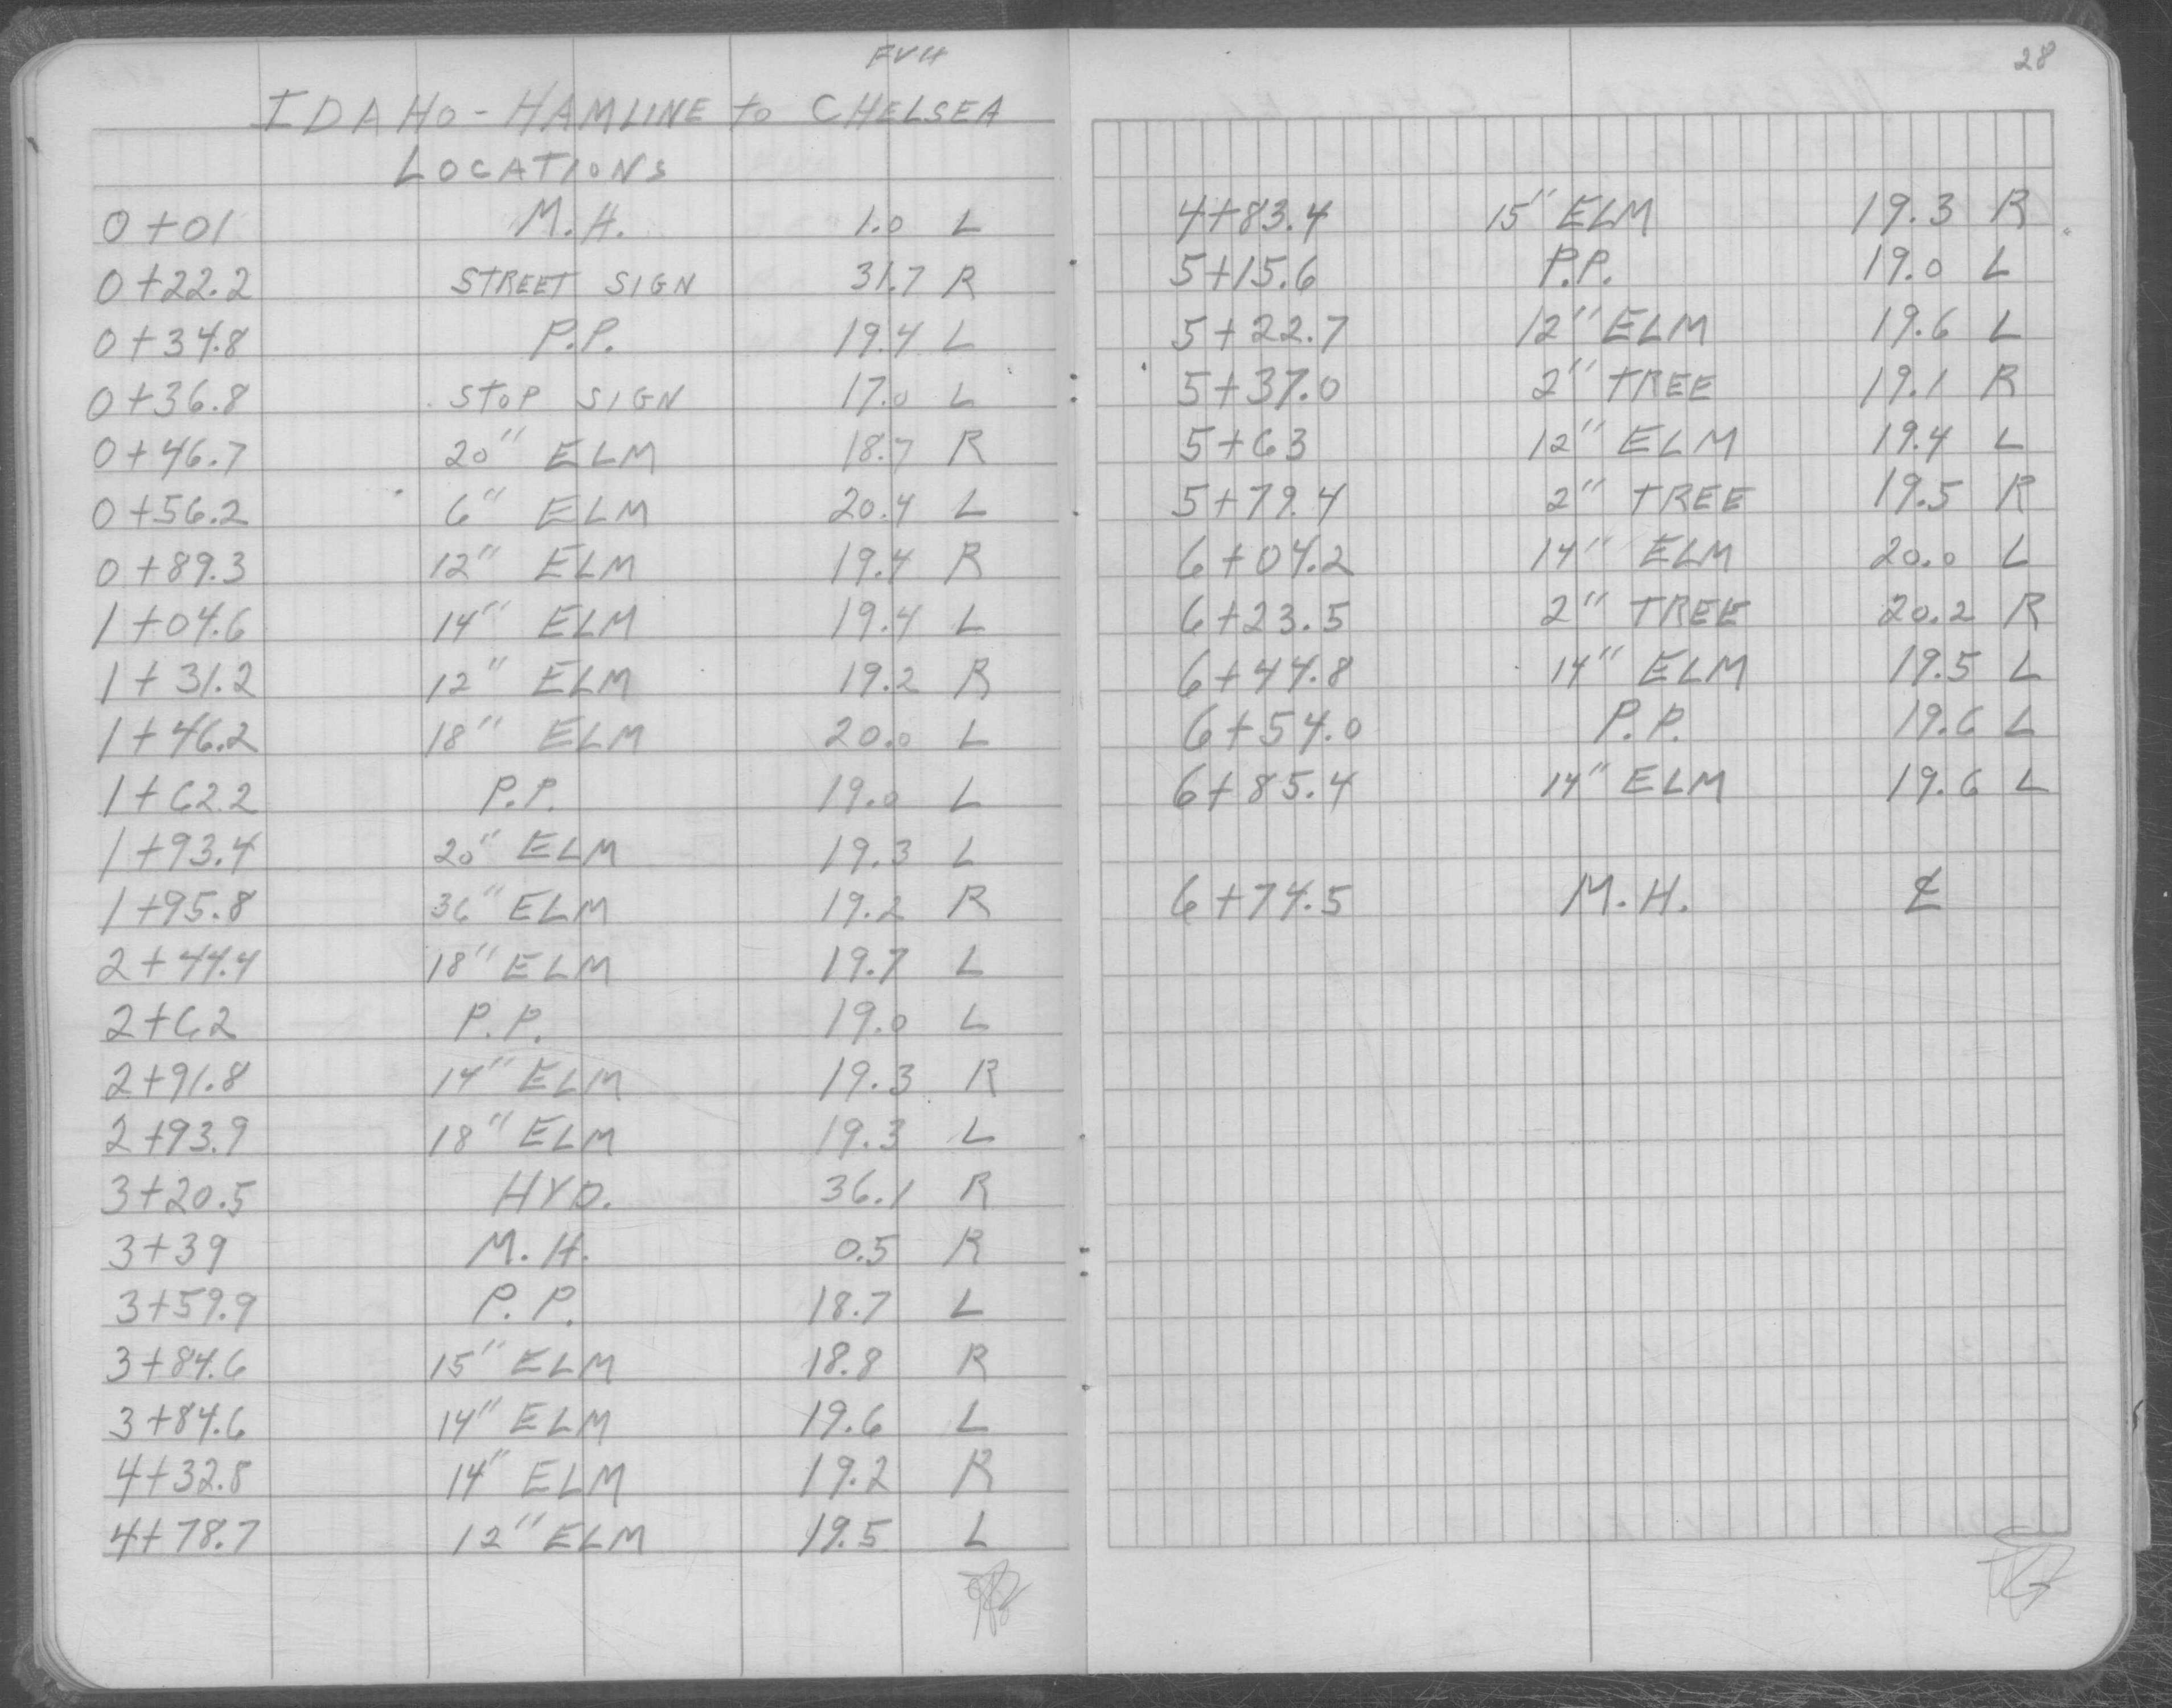 FVH
IDAHO - HAMLINE to CHELSEA
LOCATIONS
0+01 M.H. 1.0 L
0+22.2 STREET SIGN 31.7 R
0+34.8 P.P. 19.4 L
0+36.8 STOP SIGN 17.0 L
0+46.7 20" ELM 18.7 R
0+56.2 6" ELM 20.4 L
0+89.3 12" ELM 19.4 R
1+04.6 14" ELM 19.4 L
1+31.2 12" ELM 19.2 R
1+46.2 18" ELM 20.0 L
1+62.2 P.P. 19.0 L
1+93.4 20" ELM 19.3 L
1+95.8 36" ELM 19.2 R
2+44.4 18" ELM 19.7 L
2+62 P.P. 19.0 L
2+91.8 14" ELM 19.3 R
2+93.9 18" ELM 19.3 L
3+20.5 HYD. 36.1 R
3+39 M.H. 0.5 R
3+59.9 P.P. 18.7 L
3+84.6 15" ELM 18.8 R
3+84.6 14" ELM 19.6 L
4+32.8 14" ELM 19.2 R
4+78.7 12" ELM 19.5 L
28
4+83.4 15" ELM 19.3 R
5+15.6 P.P. 19.0 L
5+22.7 12" ELM 19.6 L
5+37.0 2" TREE 19.1 R
5+63 12" ELM 19.4 L
5+79.4 2" TREE 19.5 R
6+04.2 14" ELM 20.0 L
6+23.5 2" TREE 20.2 R
6+44.8 14" ELM 19.5 L
6+54.0 P.P. 19.6 L
6+85.4 14" ELM 19.6 L
6+74.5 M.H. ℄